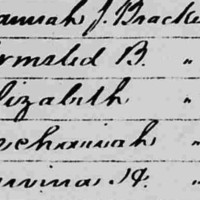 annah J. Bracke
rmsted B. "
lizabeth "
chariah "
vina H. "